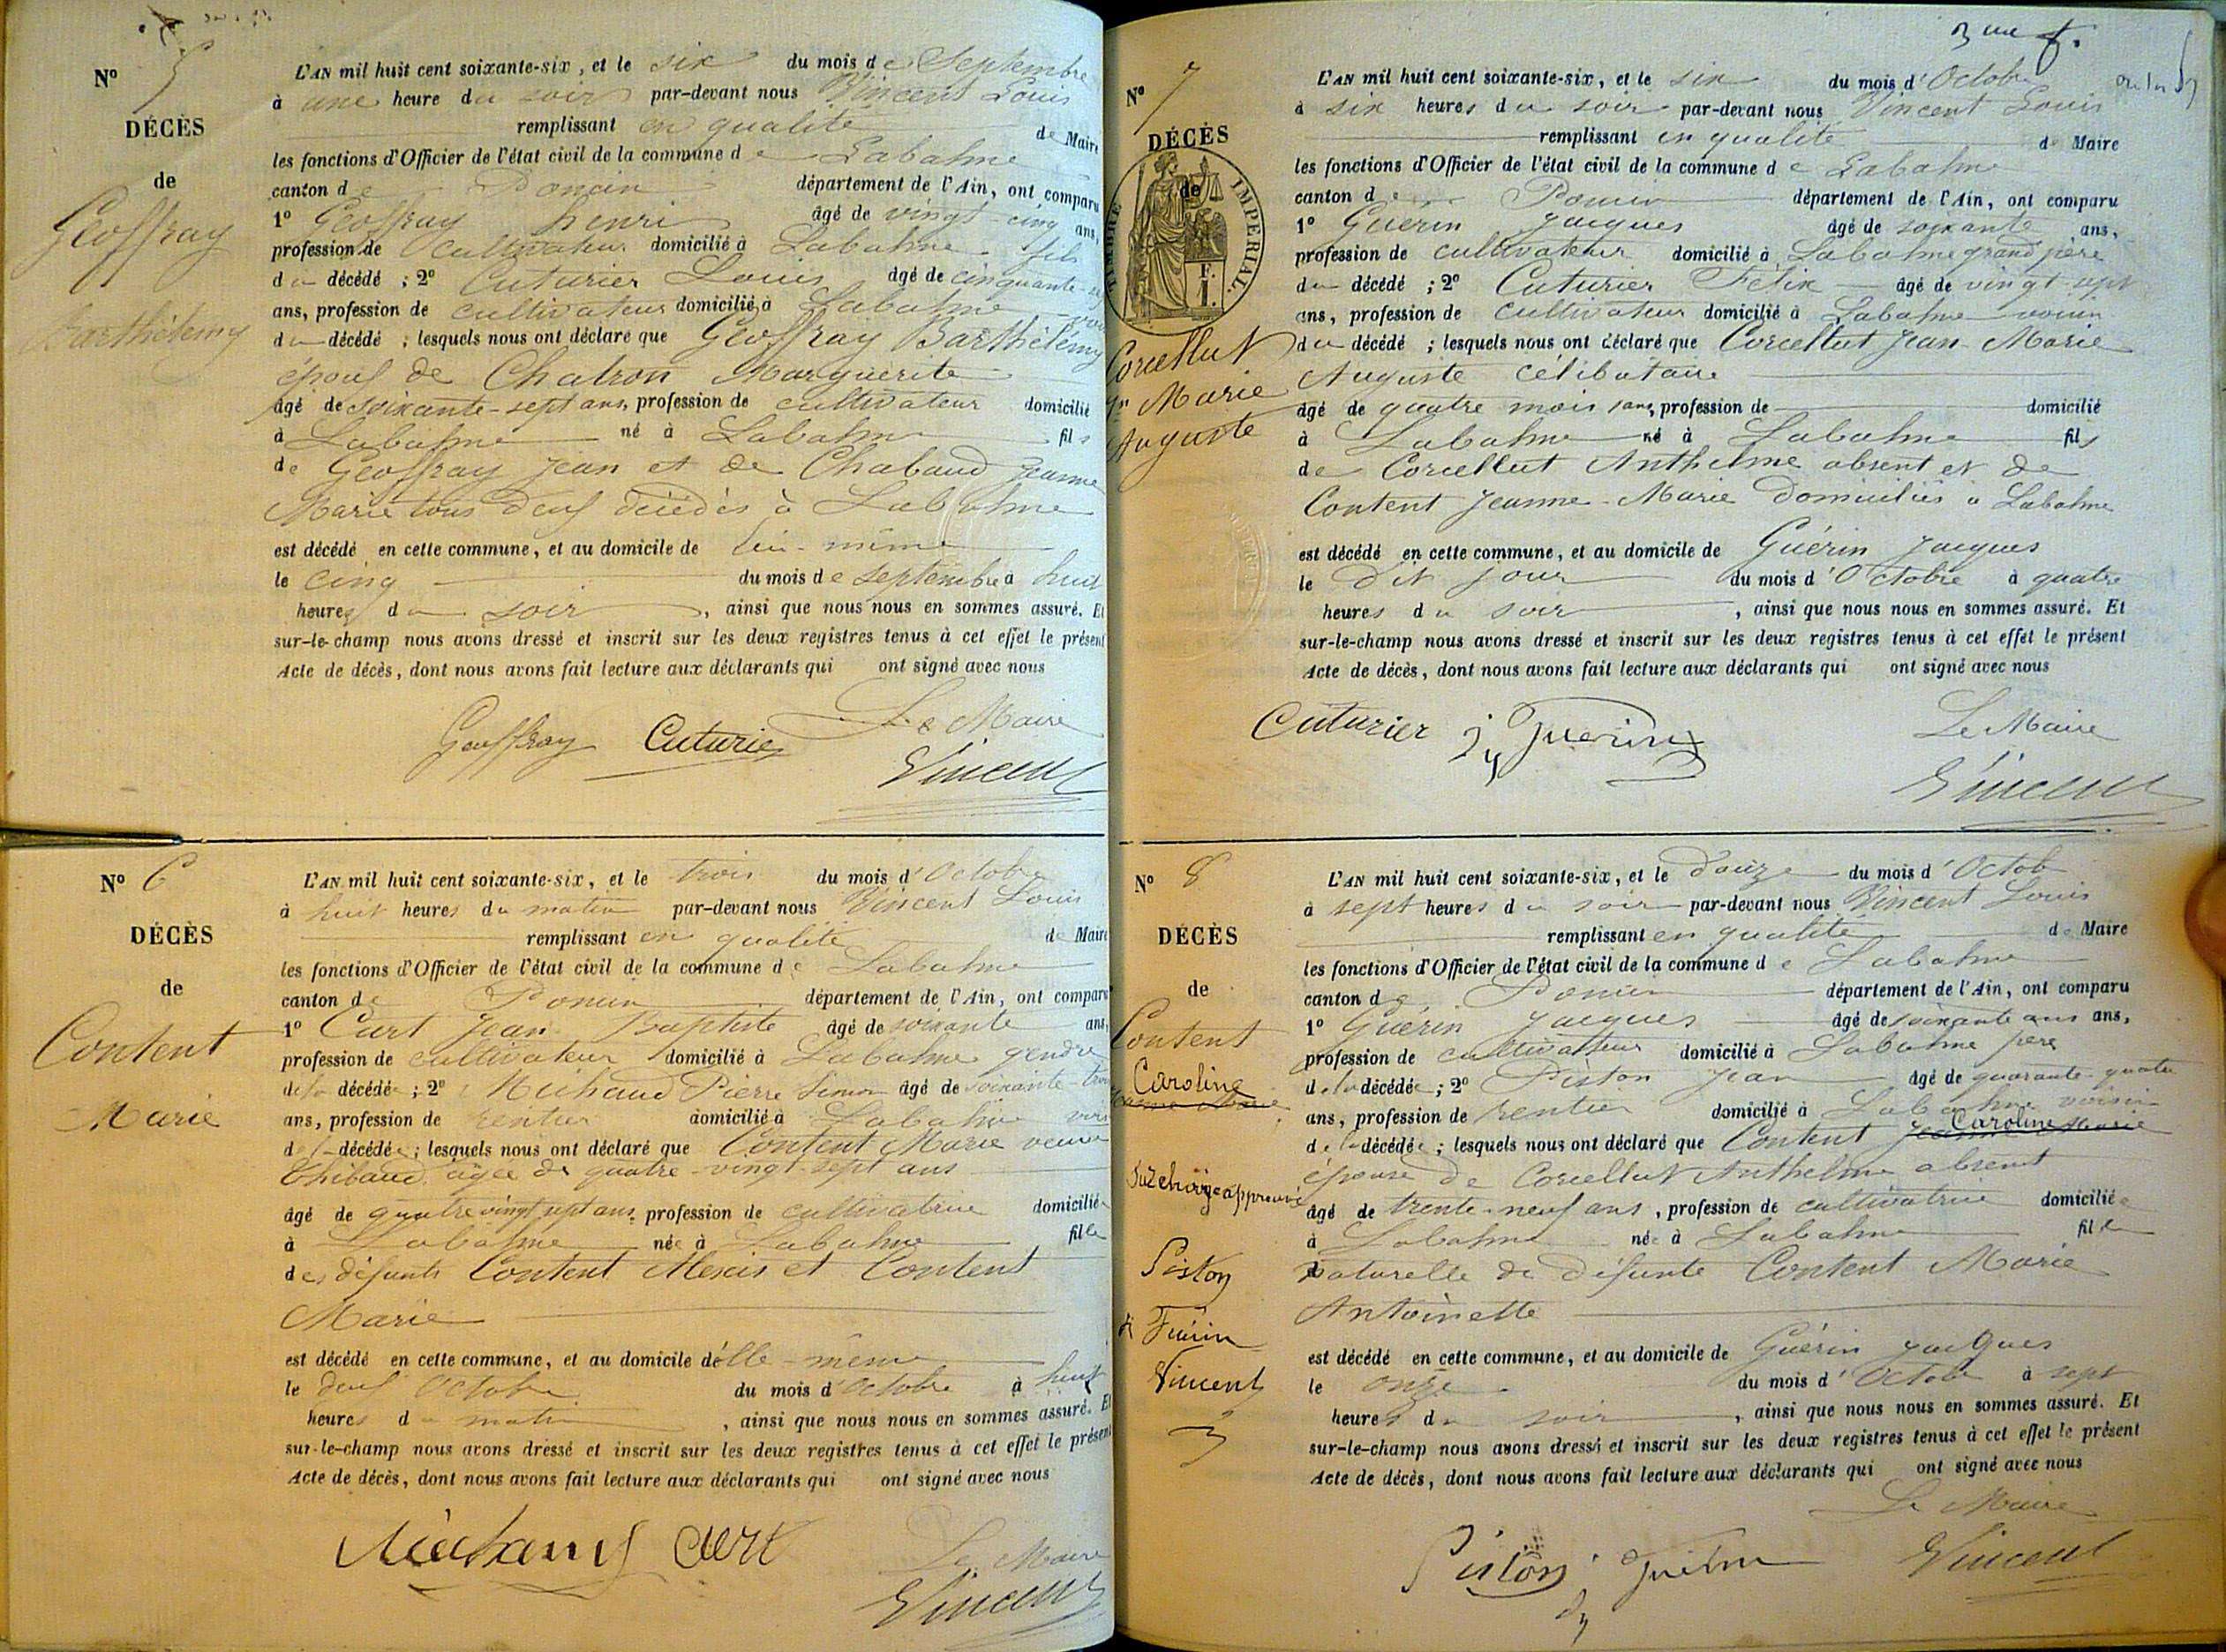 Nº 5
DÉCÈS
de
Geoffray
Barthélemy
L'AN mil huit cent soixante-six, et le six du mois de Septembre
à une heure du soir par-devant nous Vincent Louis
remplissant en qualité de Maire
les fonctions d'Officier de l'état civil de la commune de Labalme
canton de Poncin département de l'Ain, ont comparu
1º Geoffray henri âgé de vingt-cinq ans,
profession de Cultivateur domicilié à Labalme fils
du décédé ; 2º Cuturier Louis âgé de cinquante-
ans, profession de cultivateur domicilié à Labalme
du décédé ; lesquels nous ont déclaré que Geoffray Barthélemy
époux de Chatron Marguerite
âgé de soixante-sept ans, profession de cultivateur domicilié
à Labalme né à Labalme fils
de Geoffray Jean et de Chabaud Jeanne
Marie tous deux décédés à Labalme
est décédé en cette commune, et au domicile de lui-même
le cinq du mois de septembre à huit
heures du soir, ainsi que nous nous en sommes assuré. Et
sur-le-champ nous avons dressé et inscrit sur les deux registres tenus à cet effet le présent
Acte de décès, dont nous avons fait lecture aux déclarants qui ont signé avec nous
Le Maire
Geoffray Cuturier
Vincent
Nº 6
DÉCÈS
de
Content
Marie
L'AN mil huit cent soixante-six, et le trois du mois d'Octobre
à huit heures du matin par-devant nous Vincent Louis
remplissant en qualité de Maire
les fonctions d'Officier de l'état civil de la commune de Labalme
canton de Poncin département de l'Ain, ont comparu
1º Curt Jean Baptiste âgé de soixante ans,
profession de cultivateur domicilié à Labalme gendre
de la décédée ; 2º Michaud Pierre Simon âgé de soixante-trois
ans, profession de rentier domicilié à Labalme
de la décédée ; lesquels nous ont déclaré que Content Marie veuve
Thibaud âgée de quatre-vingt-sept ans
âgé de quatre vingt sept ans, profession de cultivatrice domiciliée
à Labalme née à Labalme fille
des défunts Content Alexis et Content
Marie
est décédé en cette commune, et au domicile d'elle-même
le deux Octobre du mois d'Octobre à huit
heures du matin, ainsi que nous nous en sommes assuré. Et
sur-le-champ nous avons dressé et inscrit sur les deux registres tenus à cet effet le présent
Acte de décès, dont nous avons fait lecture aux déclarants qui ont signé avec nous
Michaud Curt
Le Maire
Vincent
Nº 7
DÉCÈS
de
TIMBRE IMPERIAL.
Corcellut
Jn Marie
Auguste
L'AN mil huit cent soixante-six, et le six du mois d'Octobre
à six heures du soir par-devant nous Vincent Louis
remplissant en qualité de Maire
les fonctions d'Officier de l'état civil de la commune de Labalme
canton de Poncin département de l'Ain, ont comparu
1º Guerin Jacques âgé de soixante ans,
profession de cultivateur domicilié à Labalme grand père
du décédé ; 2º Cuturier Félix âgé de vingt-sept
ans, profession de cultivateur domicilié à Labalme voisin
du décédé ; lesquels nous ont déclaré que Corcellut Jean-Marie
Auguste célibataire
âgé de quatre mois sans profession de domicilié
à Labalme né à Labalme fils
de Corcellut Anthelme absent et de
Content Jeanne-Marie domiciliés à Labalme
est décédé en cette commune, et au domicile de Guérin Jacques
le dit jour du mois d'Octobre à quatre
heures du soir, ainsi que nous nous en sommes assuré. Et
sur-le-champ nous avons dressé et inscrit sur les deux registres tenus à cet effet le présent
Acte de décès, dont nous avons fait lecture aux déclarants qui ont signé avec nous
Cuturier Guerin
Le Maire
Vincent
Nº 8
DÉCÈS
de
Content
Caroline
Jeanne Marie
Surcharge approuvée
Piston
Guérin
Vincent
L'AN mil huit cent soixante-six, et le douze du mois d'Octob
à sept heures du soir par-devant nous Vincent Louis
remplissant en qualité de Maire
les fonctions d'Officier de l'état civil de la commune de Labalme
canton de Poncin département de l'Ain, ont comparu
1º Guérin Jacques âgé de soixante ans ans,
profession de cultivateur domicilié à Labalme père
de la décédée ; 2º Piston Jean âgé de quarante-quatre
ans, profession de rentier domicilié à Labalme voisin
de la décédée ; lesquels nous ont déclaré que Content Jeanne Marie Caroline
épouse de Corcellut Anthelme absent
âgé de trente-neuf ans, profession de cultivatrice domiciliée
à Labalme née à Labalme fille
naturelle de défunte Content Marie
Antoinette
est décédé en cette commune, et au domicile de Guérin Jacques
le onze du mois d'Octobre à sept
heures du soir, ainsi que nous nous en sommes assuré. Et
sur-le-champ nous avons dressé et inscrit sur les deux registres tenus à cet effet le présent
Acte de décès, dont nous avons fait lecture aux déclarants qui ont signé avec nous
Le Maire
Piston Guérin Vincent